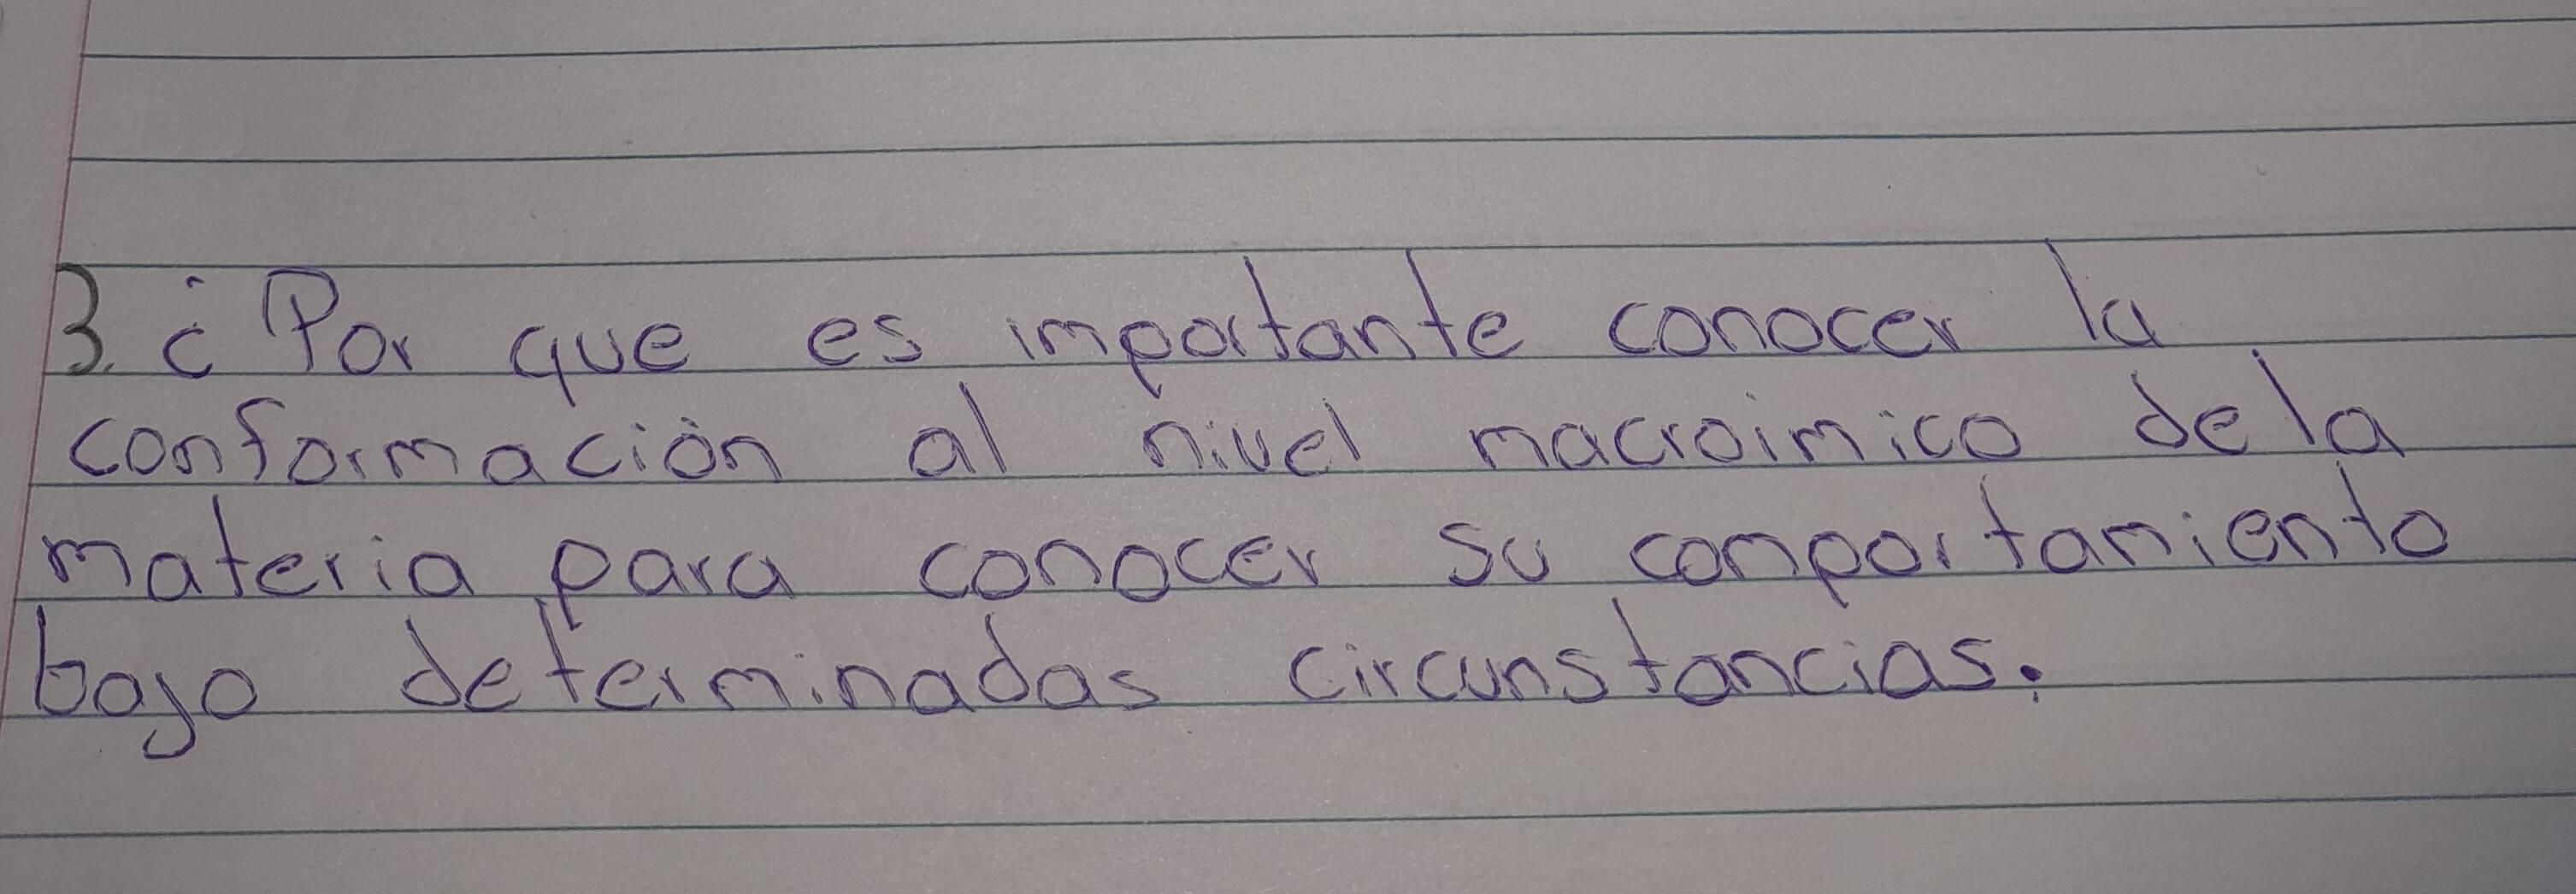 3. ¿Por que es importante conocer la
conformación al nivel macroimico dela
materia para conocer su comportamiento
bajo determinadas circunstancias.